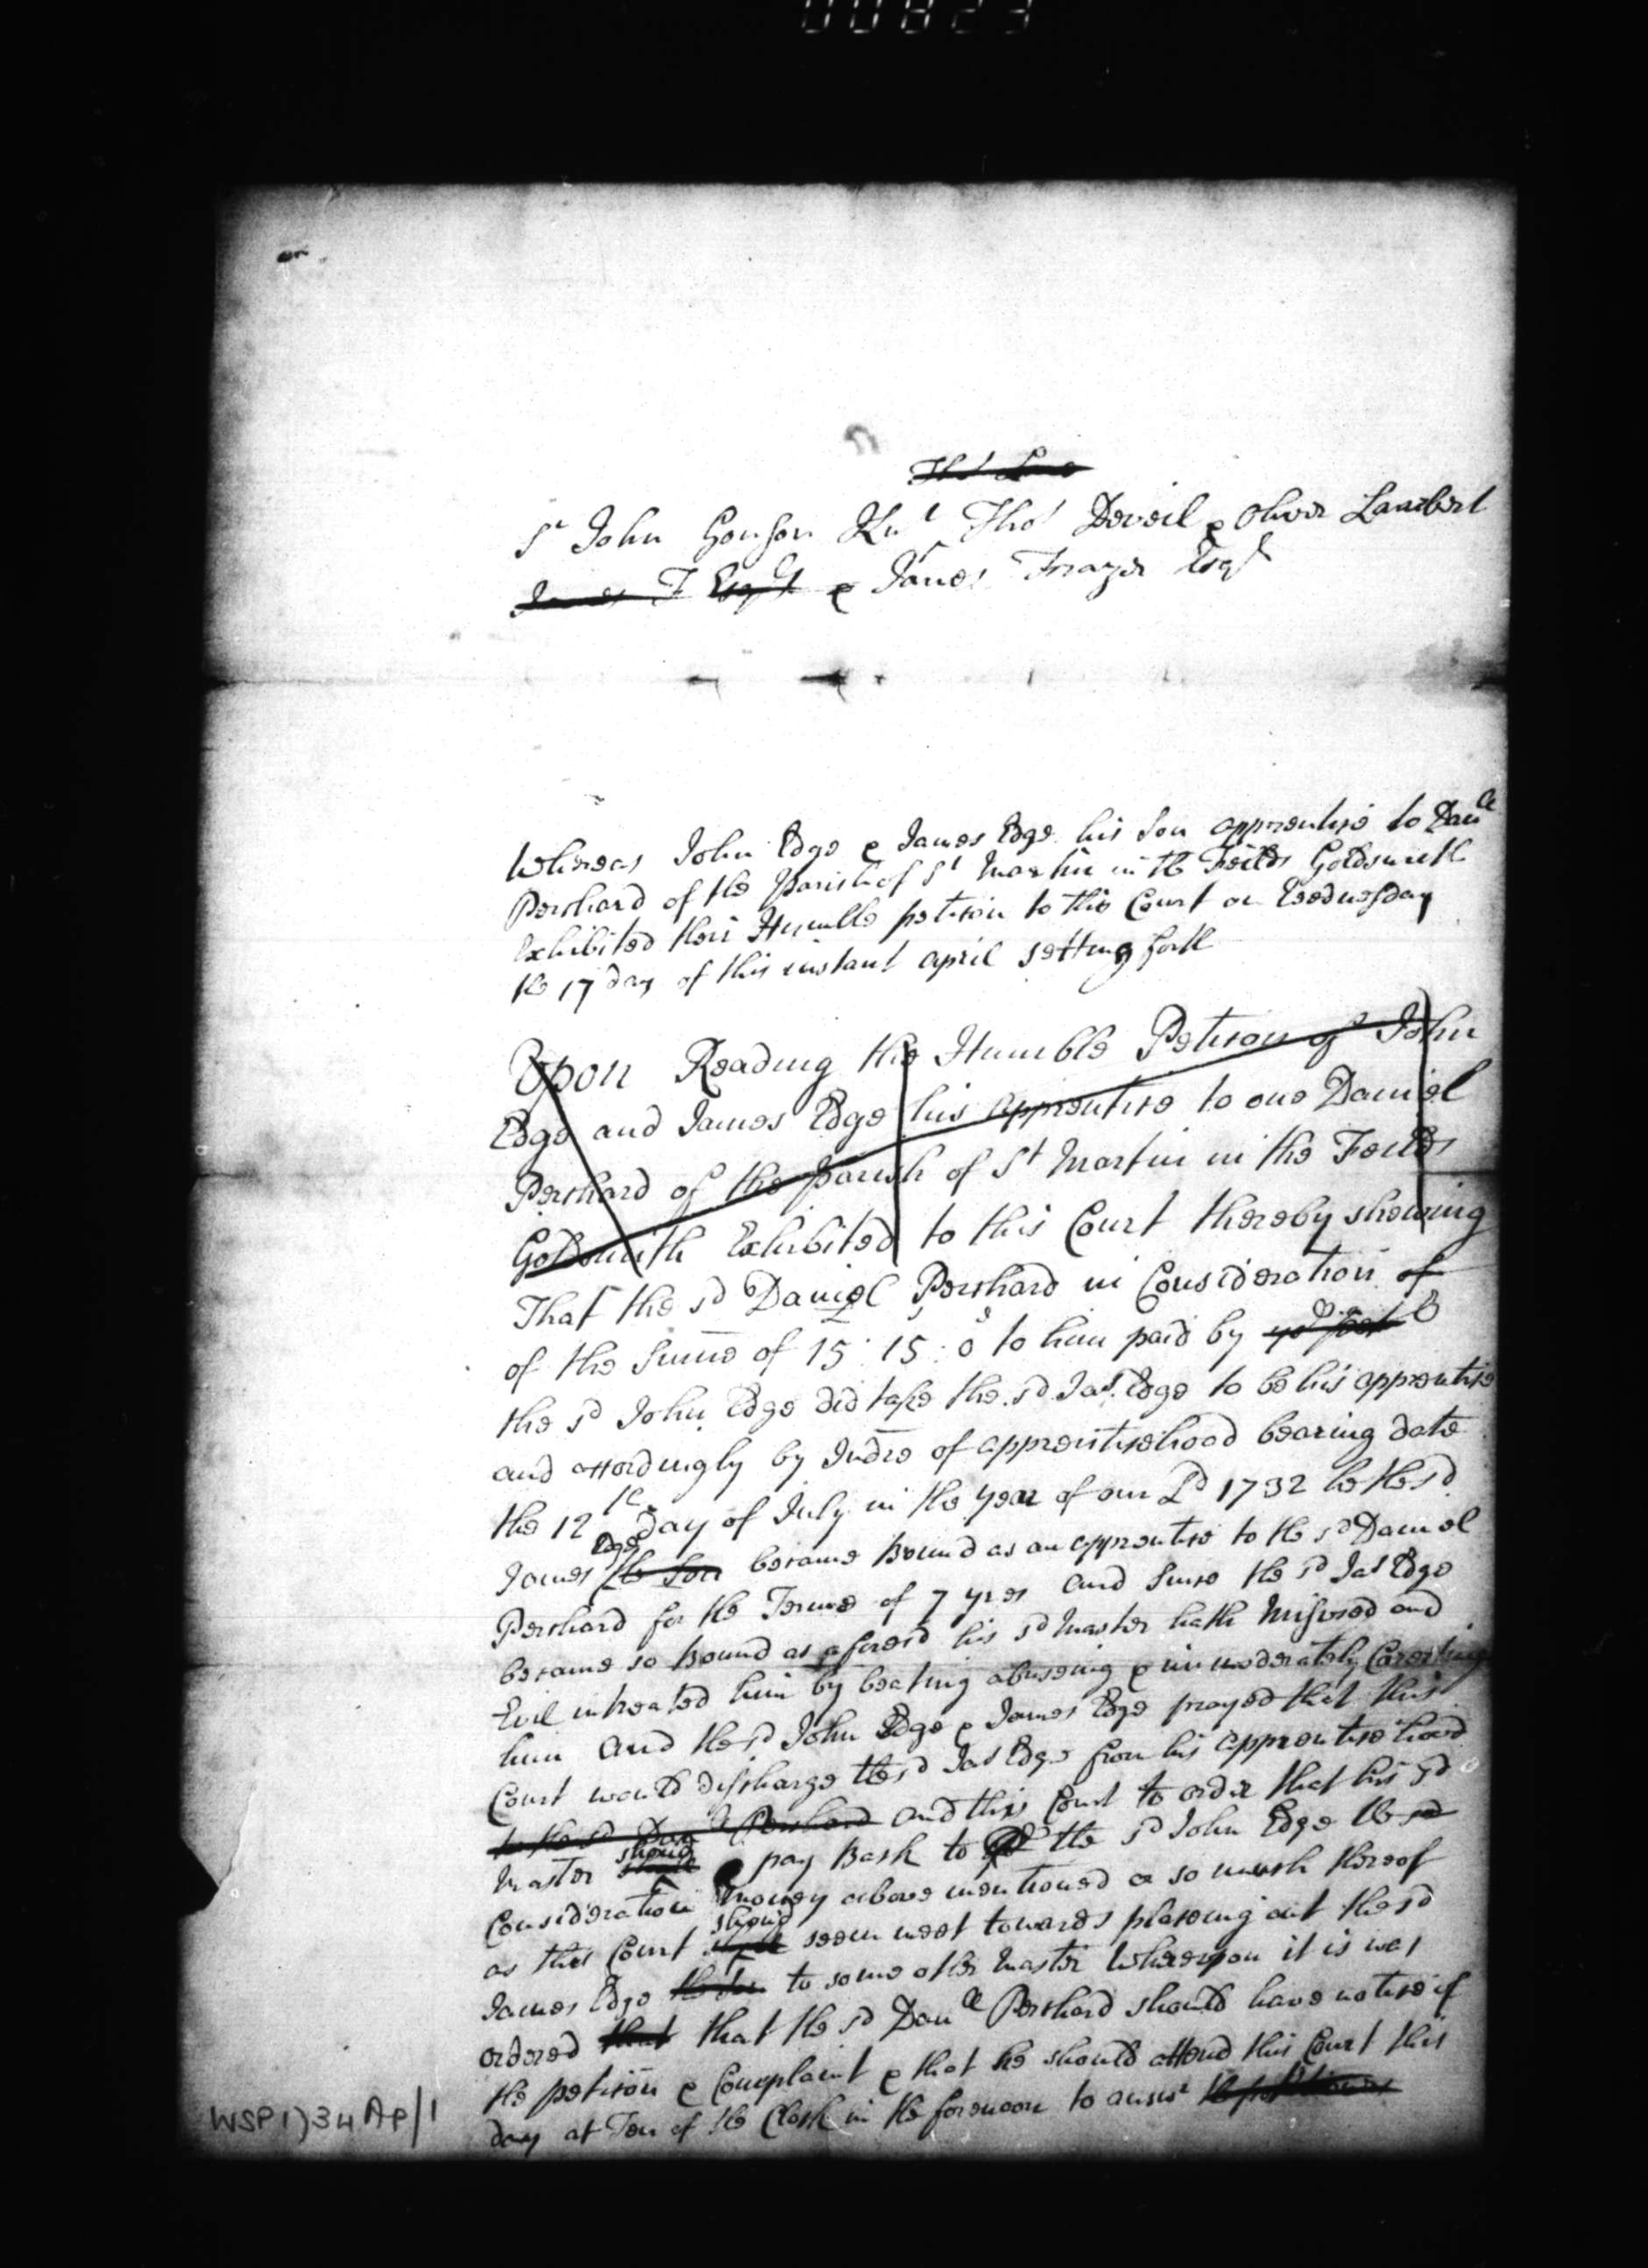 00823
Sr John Gonson Knt Thos Deveil & Oliver Lambert
James F Esqrs & James Frazer Esqrs
Whereas John Edge & James Edge his Son apprentice to Danll
Perchard of the Parish of St Martin in the Feilds Goldsmith
Exhibited their Humble peticon to this Court on Wednesday
the 17 day of this instant april setting forth
Upon Reading the Humble Peticon of John
Edge and James Edge his apprentice to one Daniel
Perchard of the Parish of St Martin in the Feilds
Goldsmith Exhibited to this Court thereby shewing
That the sd Daniel Perchard in Consideration of
of the Sume of 15: 15: 0 to him paid by
the sd John Edge did take the sd Jas. Edge to be his apprentice
and accordingly by Indre of apprenticehood bearing date
the 12th Day of July in the Year of our Ld 1732 he the sd
James Edge the Son became Bound as an apprentice to the sd Daniel
Perchard for the Terme of 7 yres and Since the sd Jas Edge
became so Bound as aforesd his sd Master hath Misused and
Evil intreated him by beating abuseing & immoderately Correcting
him And the sd John Edge & James Edge prayed that this
Court would discharge the sd Jas Edge from his apprenticehood
to the sd Danll Perchard and this Court to order that his sd
Master should pay Back to the sd John Edge the sd
Consideration Money above mentioned or so much thereof
as this Court should seem meet towards placeing out the sd
James Edge the Son to some other Master Whereupon it is was
ordered that that the sd Danll Perchard should have notice of
the peticon & Complaint & that he should attend this Court this
day at Ten of the Clock in the forenoon to answr the petitioners
WSP 1734 Ap/1